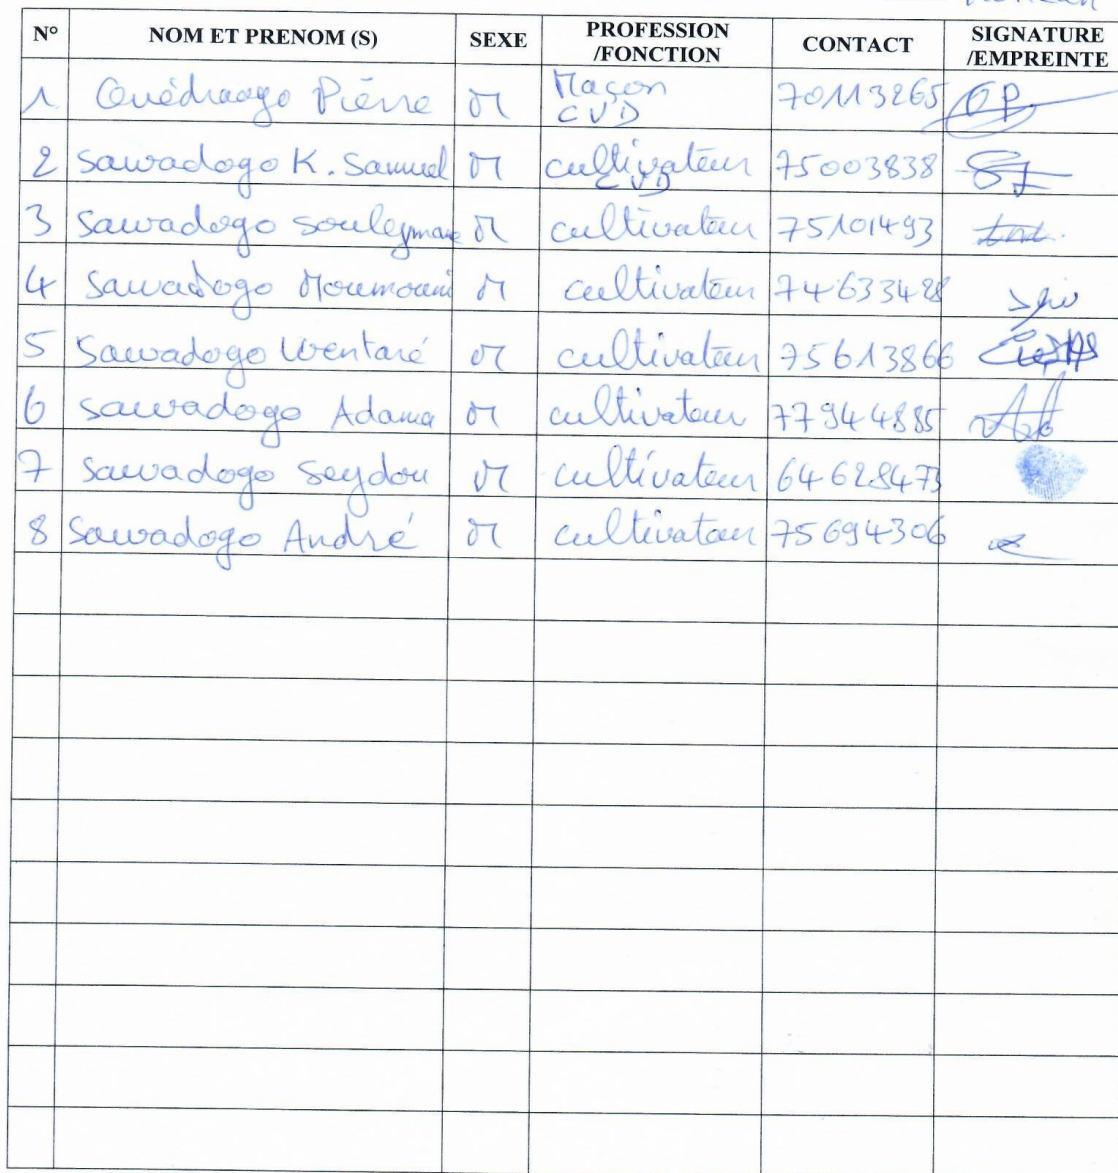 N° NOM ET PRENOM (S) SEXE PROFESSION /FONCTION CONTACT SIGNATURE /EMPREINTE
1 Ouédraogo Piérre M Maçon CVD 70113265 OP
2 Sawadogo K. Samuel M cultivateur CVD 75003838
3 Sawadogo Souleymane M cultivateur 75101493
4 Sawadogo Moumouni M cultivateur 74633428
5 Sawadogo Wentaré M cultivateur 75613866
6 Sawadogo Adama M cultivateur 77944885
7 Sawadogo Seydou M cultivateur 64628473
8 Sawadogo André M cultivateur 75694306